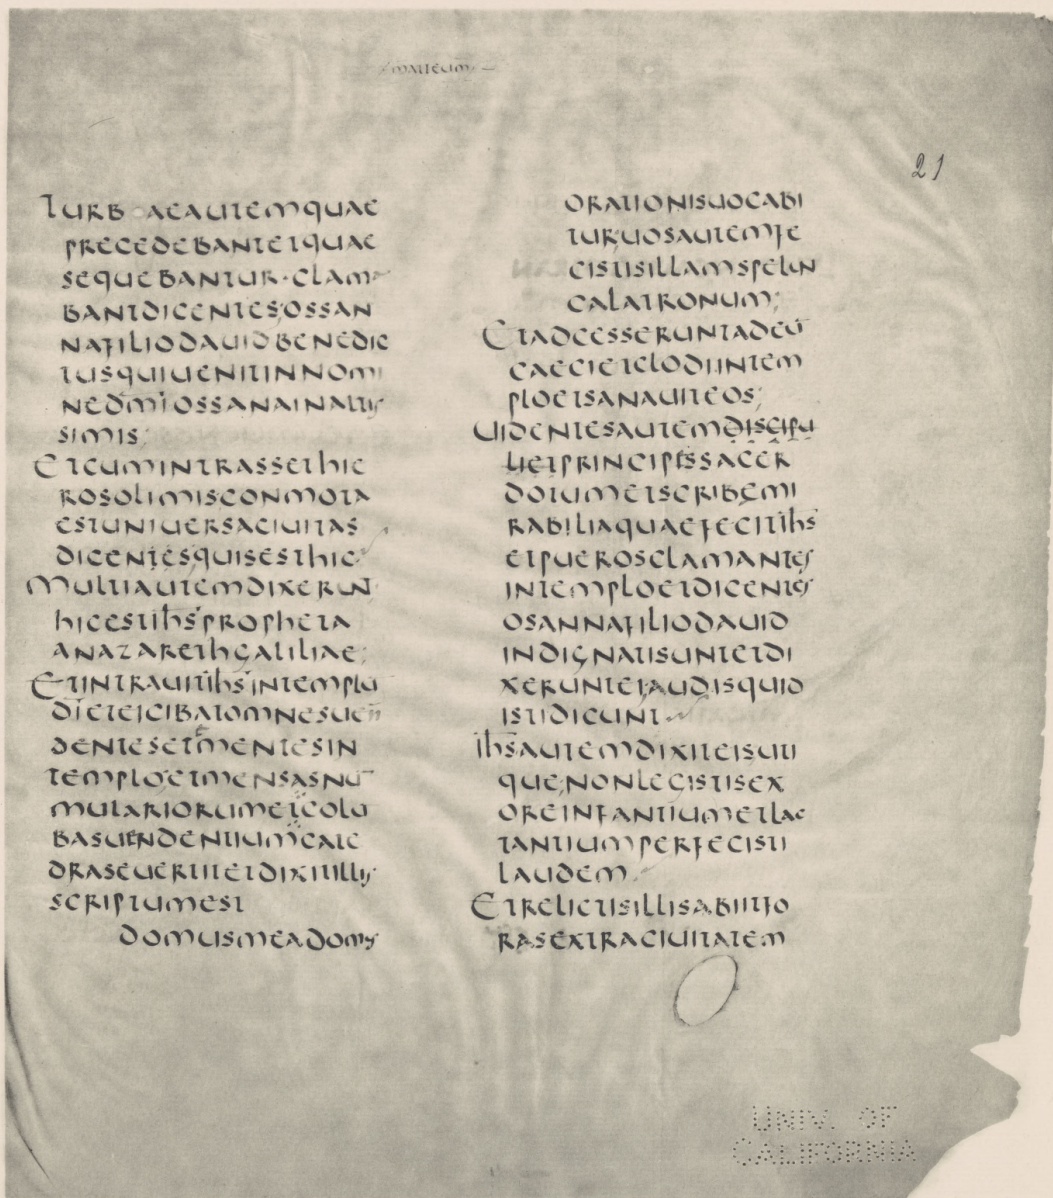 matteum
21
TURBAEAUTEMQUAE
PRECEDEBANTETQUAE
SEQUEBANTUR·CLAMA
BANTDICENTES·OSSAN
NAFILIODAUIDBENEDIC
TUSQUIUENITINNOMI
NEDM̄IOSSANAINALTIS
SIMIS;
ETCUMINTRASSETHIE
ROSOLIMISCONMOTA
ESTUNIUERSACIUITAS
DICENTESQUISESTHIC
MULTIAUTEMDIXERUNT
HICESTIH̄SPROPHETA
ANAZARETHGALILIAE;
ETINTRAUITIH̄SINTEMPLŪ
DIETEICIBATOMNESUEN
DENTESETEMENTESIN
TEMPLOETMENSASNU
MULARIORUMETCOLU
BASUENDENTIUMCATE
DRASEUERTITETDIXITILLIS
SCRIPTUMEST
DOMUSMEADOMUS
ORATIONISUOCABI
TURUOSAUTEMFE
CISTISILLAMSPELUN
CALATRONUM;
ETADCESSERUNTADEŪ
CAECIETCLODIINTEM
PLOETSANAUITEOS;
UIDENTESAUTEMDISCIPU
LIETPRINCIPESSACER
DOTUMETSCRIBEMI
RABILIAQUAEFECITIH̄S
ETPUEROSCLAMANTES
INTEMPLOETDICENTES
OSANNAFILIODAUID
INDIGNATISUNTETDI
XERUNTEIAUDISQUID
ISTIDICUNT
IH̄SAUTEMDIXITEISUTI
QUE;NONLEGISTISEX
OREINFANTIUMETLAC
TANTIUMPERFECISTI
LAUDEM
ETRELICTISILLISABIITFO
RASEXTRACIUITATEM
UNIV. OF
CALIFORNIA